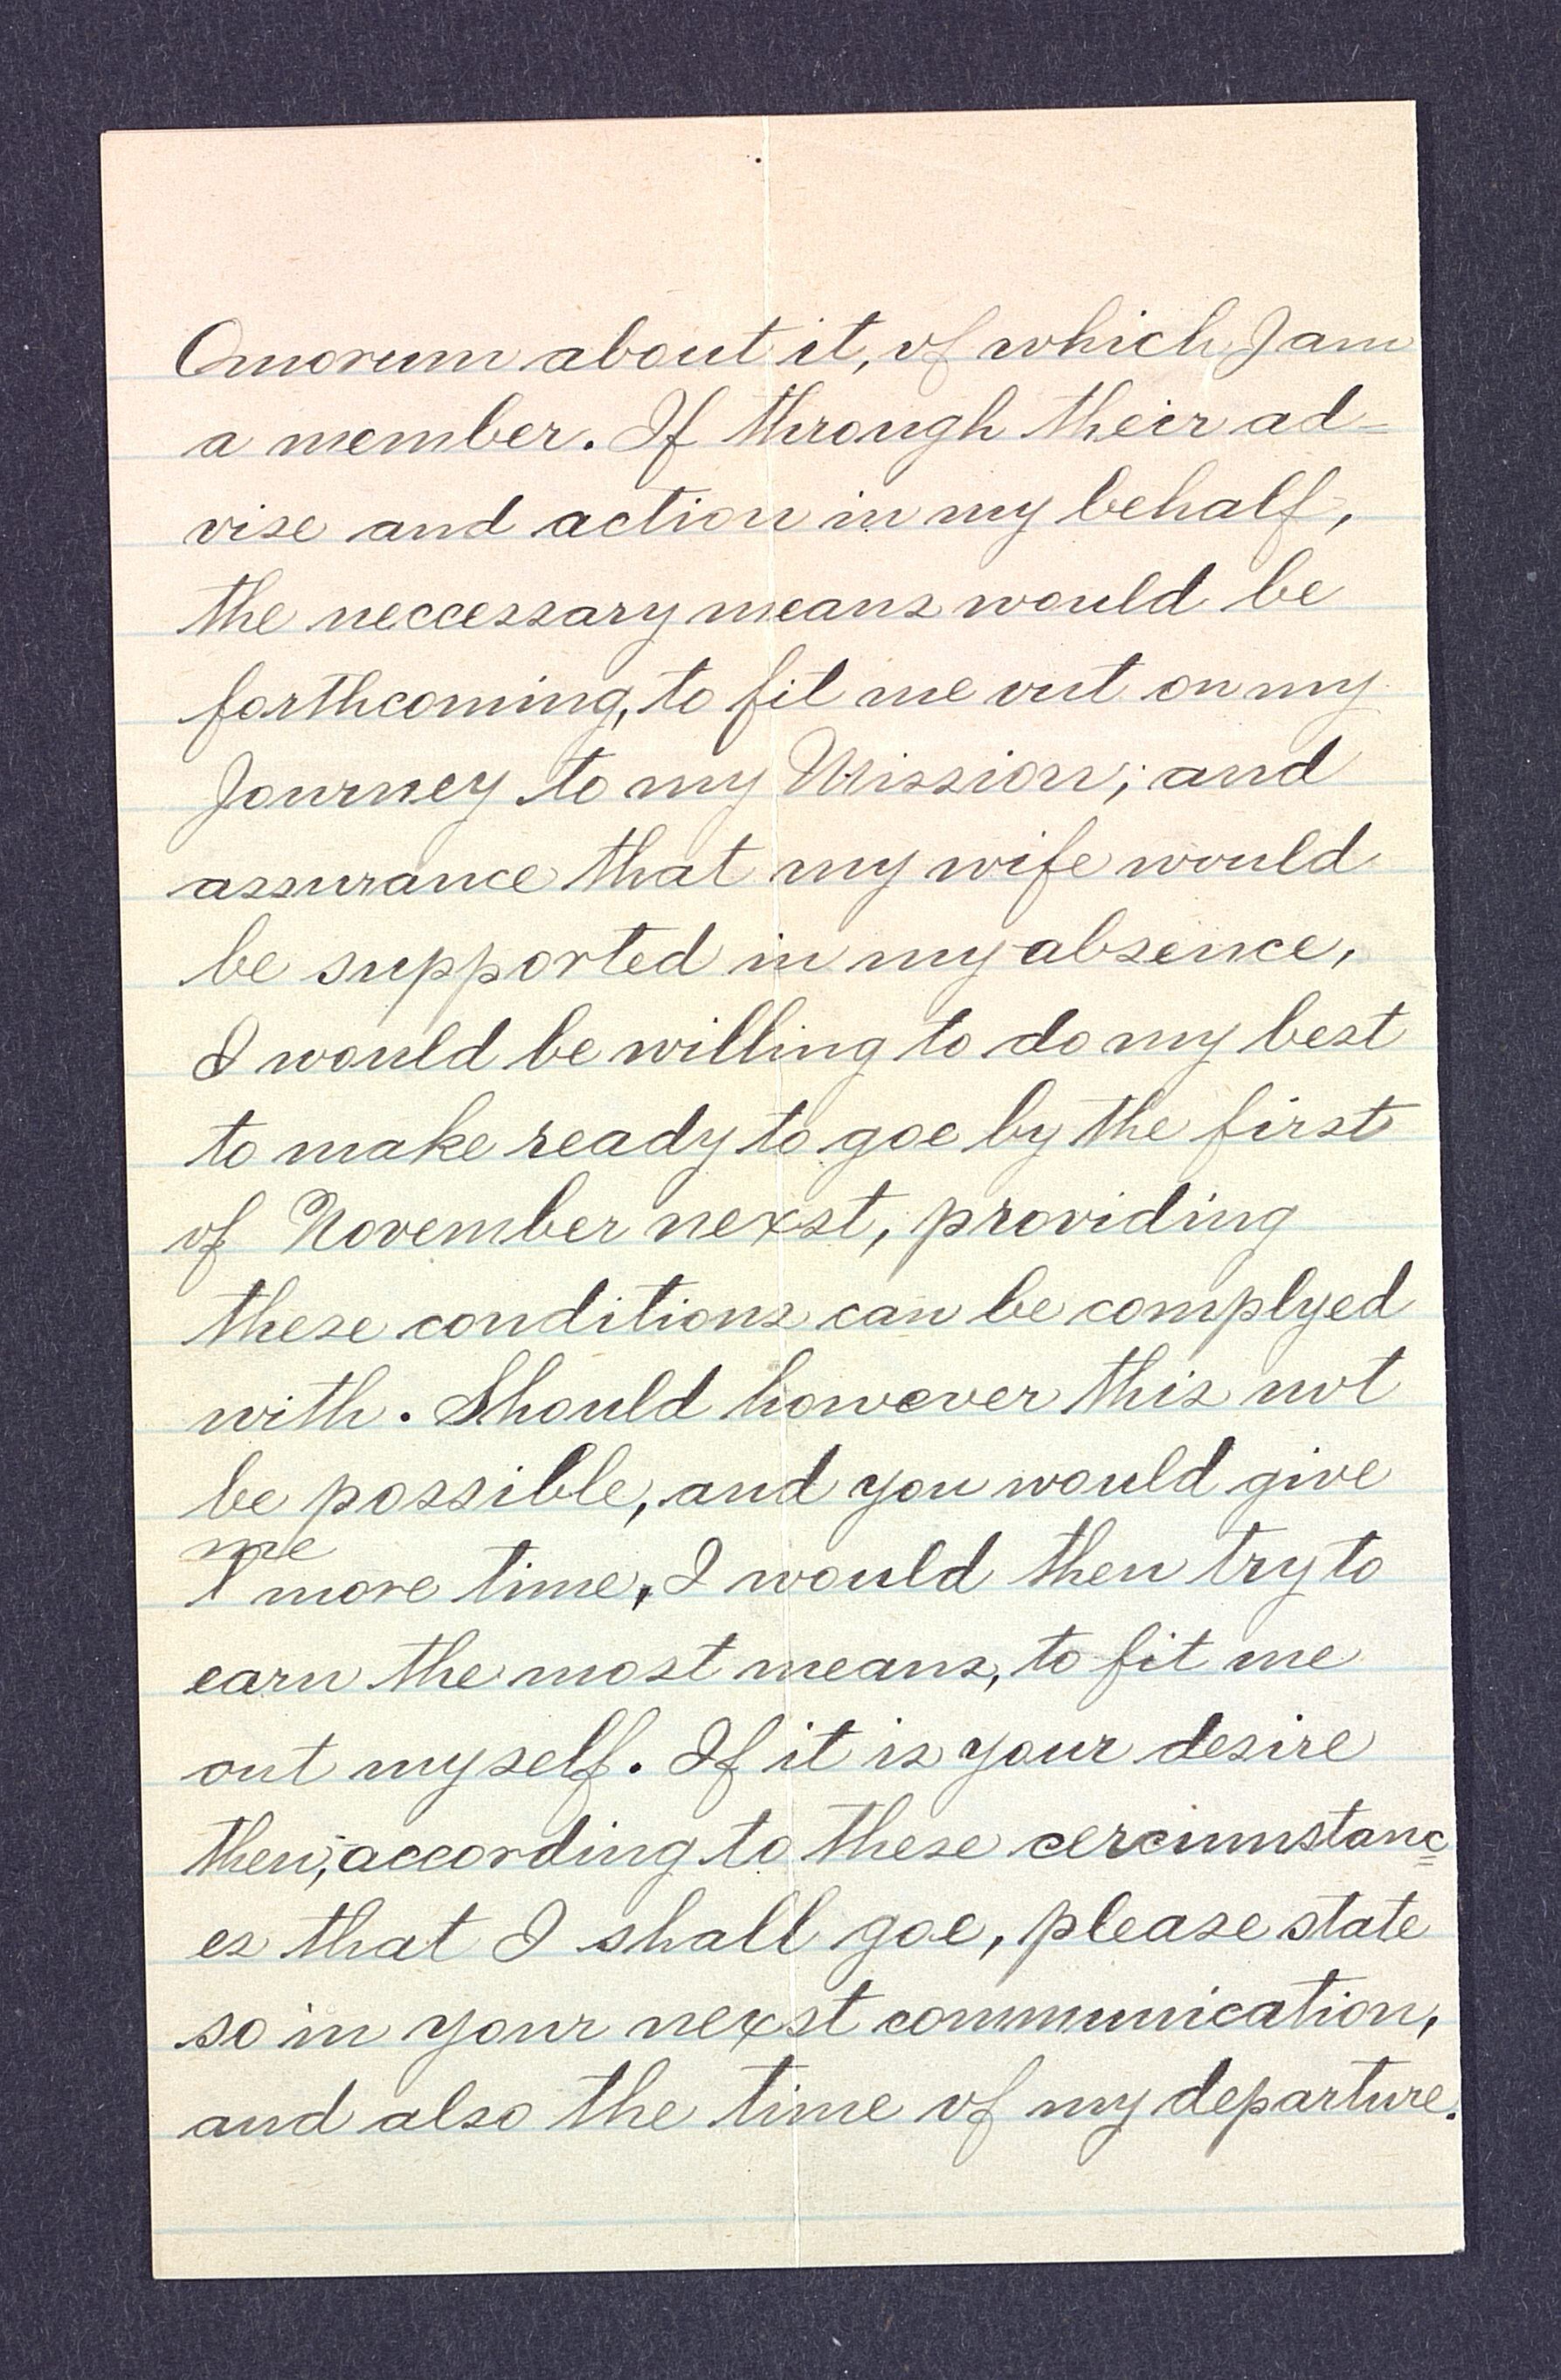 Quorum about it, of which I am
a member. If through their ad-
vise and action in my behalf,
the neccessary means would be
forthcoming, to fit me out on my
Journey to my Mission; and
assurance that my wife would
be supported in my absence,
I would be willing to do my best
to make ready to goe by the first
of November nexst, providing
these conditions can be complyed
with. Should however this not
be possible, and you would give
me
^ more time, I would then try to
earn the most means, to fit me
out myself. If it is your desire
then, according to these cercumstanc=
es that I shall goe, please state
so in your nexst communication,
and also the time of my departure.